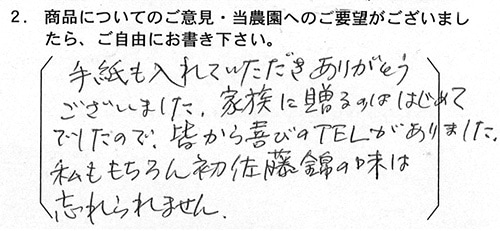 2. 商品についてのご意見・当農園へのご要望がございまし
たら、ご自由にお書き下さい。
手紙も入れていただきありがとう
ございました。家族に贈るのははじめて
でしたので、皆から喜びのTELがありました。
私ももちろん初佐藤錦の味は
忘れられません。